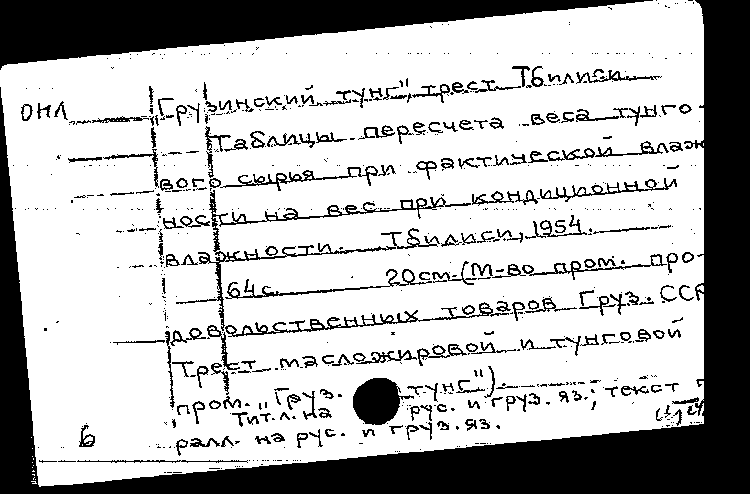 ОНЛ
Грузинский тунг", трест. Тбилиси.
Таблицы пересчета веса тунго-
вого сырья при фактической влаж
ности на вес при кондиционной
влажности. Тбилиси, 1954.
64 с. 20см. (М-во пром. про-
довольственных товаров Груз. ССР
Трест масложировой и тунговой
пром. "Груз. тунг").
Тит. л. на рус. и груз. яз.; текст п
ралл. на рус. и груз. яз.
Б